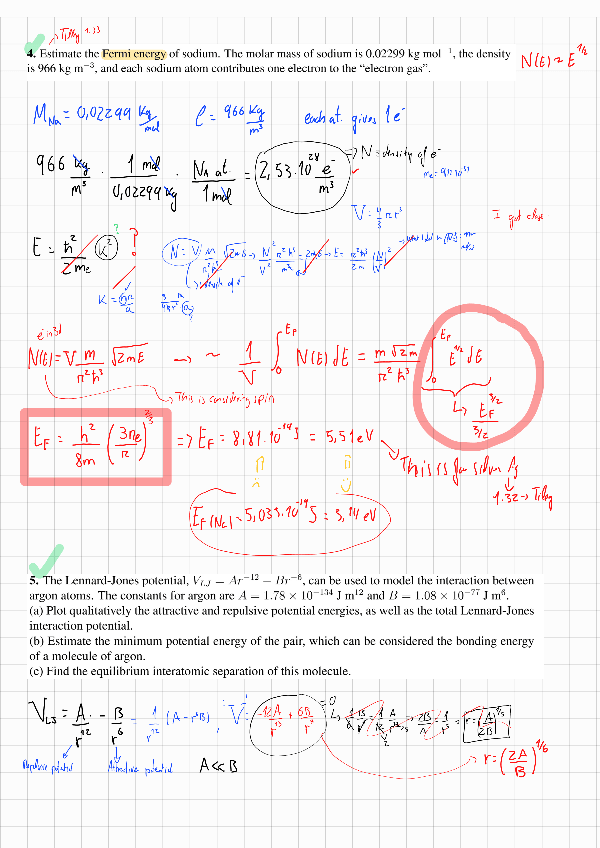 → Tilley 1.33
4. Estimate the Fermi energy of sodium. The molar mass of sodium is 0.02299 kg mol⁻¹, the density
is 966 kg m⁻³, and each sodium atom contributes one electron to the “electron gas”.
N(E) ~ E^1/2
M_Na = 0,02299 kg/mol ρ = 966 kg/m³ each at. gives 1 e⁻
966 kg/m³ · 1 mol/0,02299 kg · N_A at/1 mol = 2,53·10²⁸ e⁻/m³ → N = density of e⁻
V = 4/3 π r³
I got close
E = ħ²/2m_e k² ?
K = nπ/a
e⁻ in 3d
N(E) = V m/π²ħ³ √2mE → ~ 1/V ∫₀^E_F N(E) dE = m√2m/π²ħ³ ∫₀^E_F E^1/2 dE
→ This is considering spin
↳ E_F^3/2 / 3/2
E_F = h²/8m (3n_e/π)^2/3 => E_F = 8,81·10⁻¹⁹ J = 5,51 eV
This is for silver Ag
1.32 → Tilley
E_F (Na) = 5,033·10⁻¹⁹ J = 3,14 eV
5. The Lennard-Jones potential, V_LJ = Ar⁻¹² − Br⁻⁶, can be used to model the interaction between
argon atoms. The constants for argon are A = 1.78 × 10⁻¹³⁴ J m¹² and B = 1.08 × 10⁻⁷⁷ J m⁶.
(a) Plot qualitatively the attractive and repulsive potential energies, as well as the total Lennard-Jones
interaction potential.
(b) Estimate the minimum potential energy of the pair, which can be considered the bonding energy
of a molecule of argon.
(c) Find the equilibrium interatomic separation of this molecule.
V_LJ = A/r¹² − B/r⁶ = 1/r¹² (A − r⁶B) ; V' = −12A/r¹³ + 6B/r⁷ = 0
Repulsive potential Attractive potential A << B
r = (2A/B)^1/6